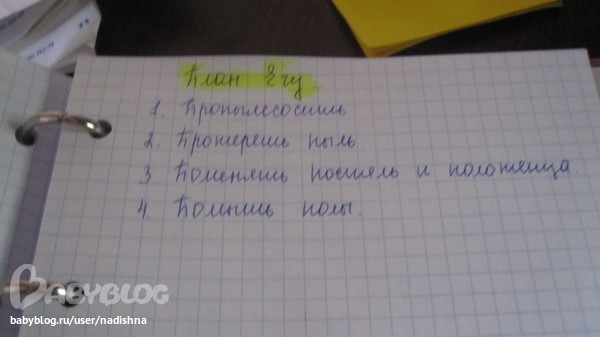 План
1. Пропылесосить
2. Протереть пыль
3 Поменять постель и полотенца.
4 Помыть полы.
BABYBLOG
babyblog.ru/user/nadishna